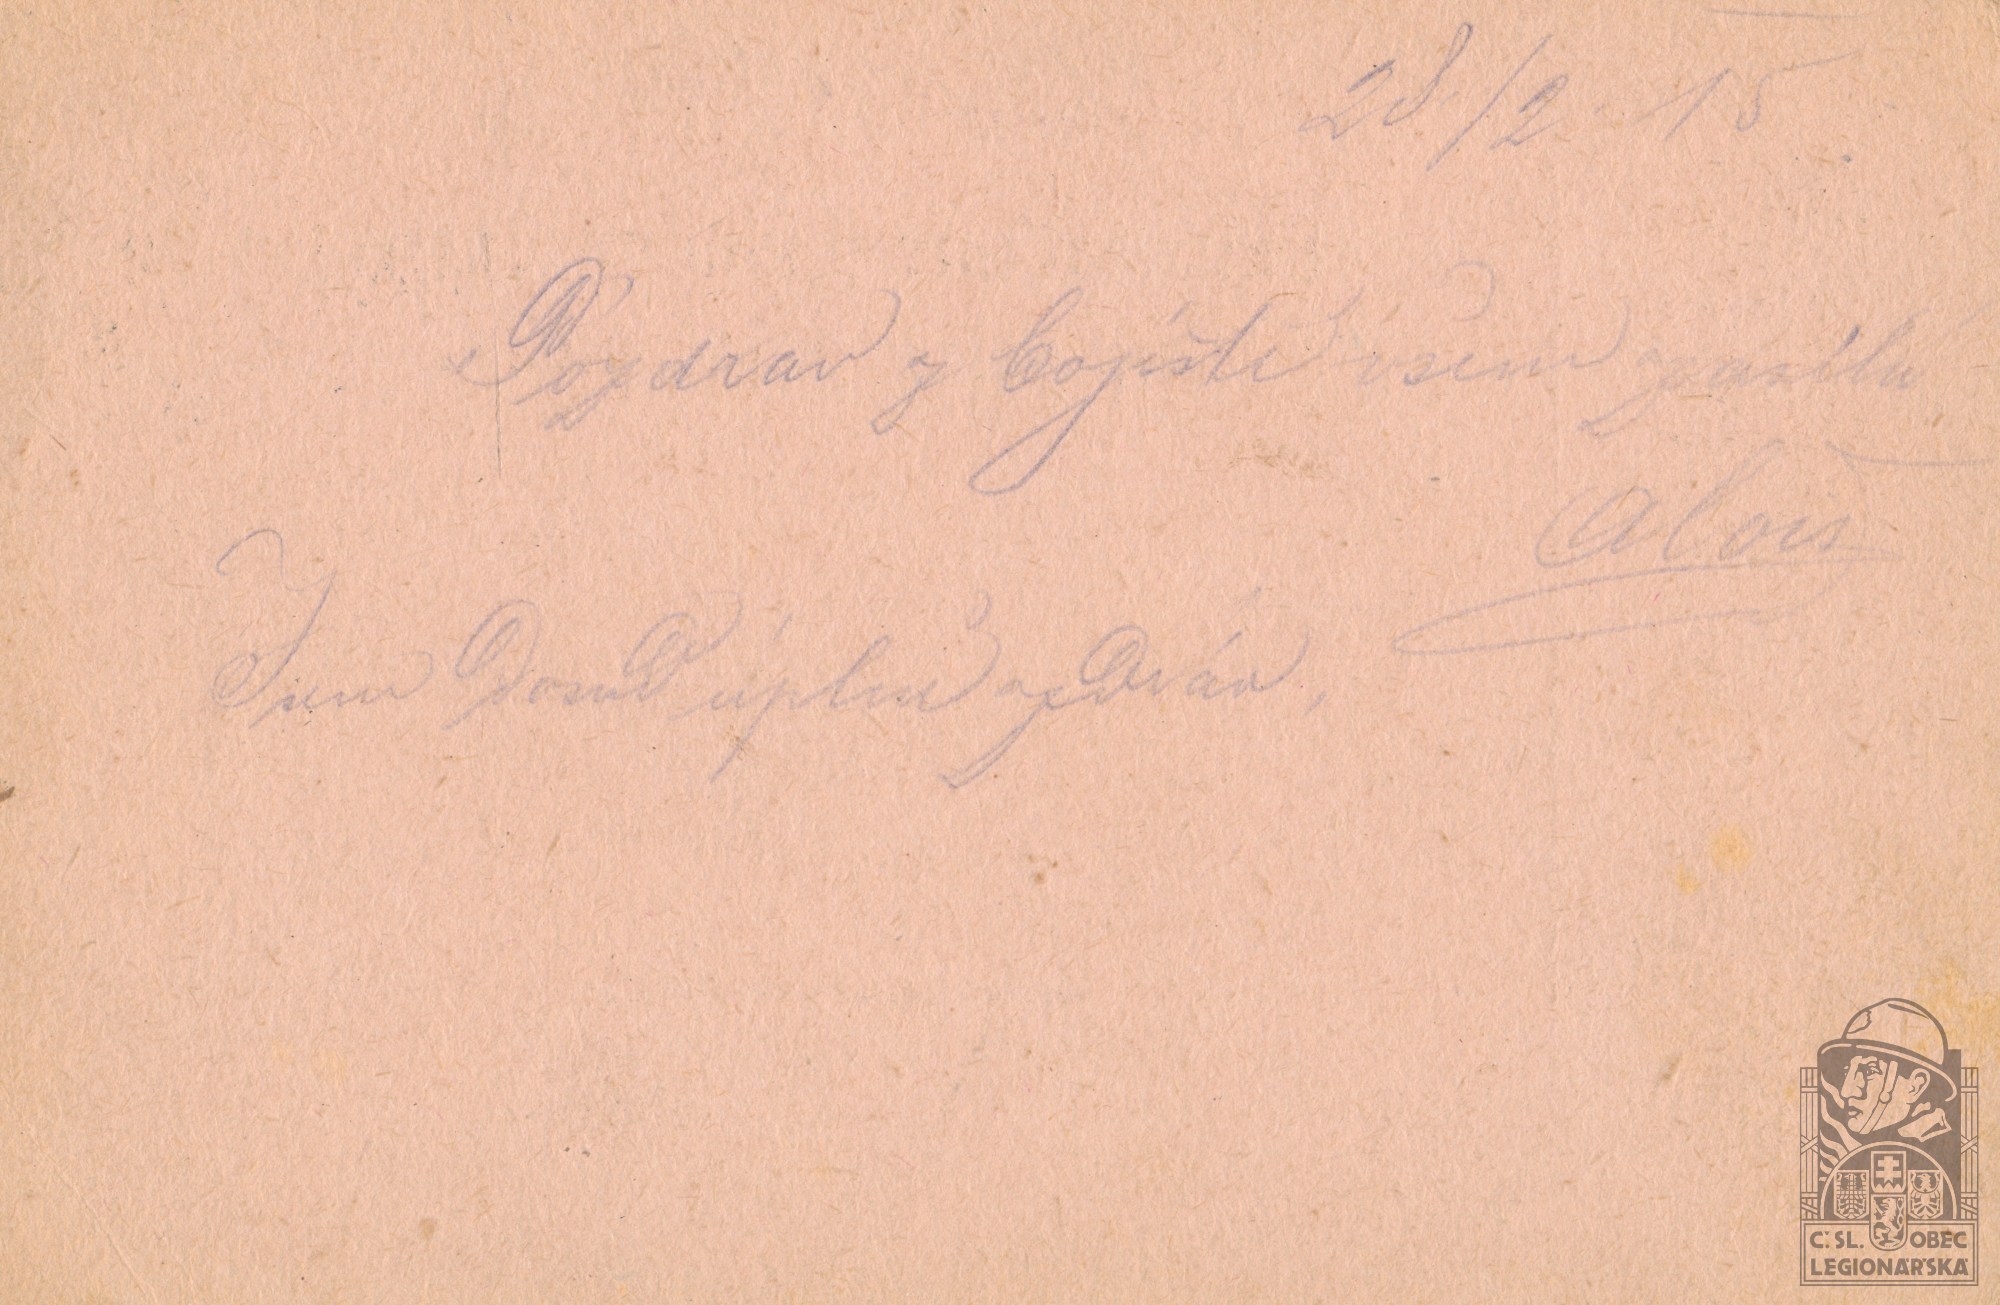 28/2. 15.
Pozdrav z bojiště všem zasílá
Alois
Jsem dosud úplně zdráv.
Č. SL. OBEC
LEGIONÁŘSKÁ